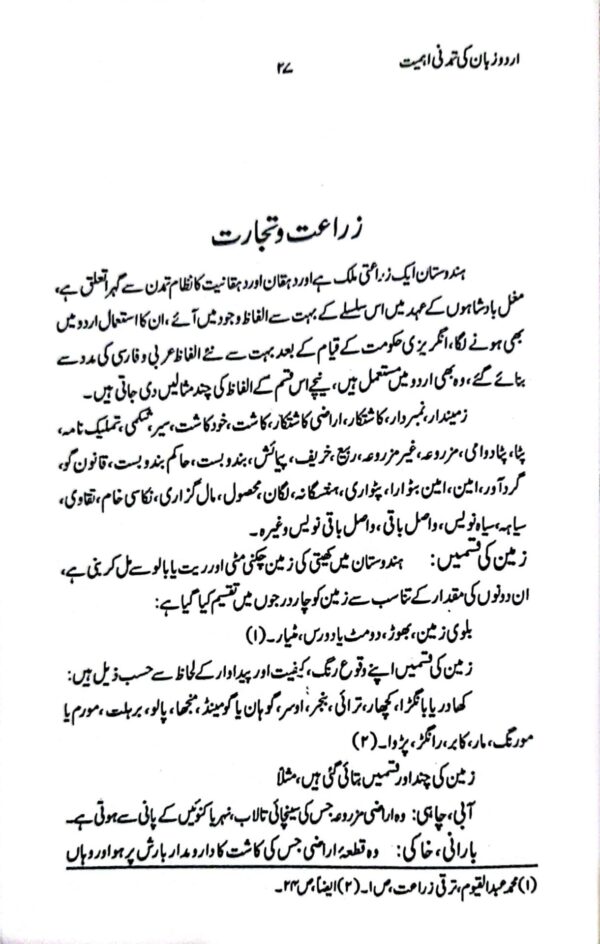 اردو زبان کی تمدنی اہمیت
۲۷
زراعت و تجارت
ہندوستان ایک زراعتی ملک ہے اور دہقان اور دہقانیت کا نظام تمدن سے گہرا تعلق ہے،
مغل بادشاہوں کے عہد میں اس سلسلے کے بہت سے الفاظ وجود میں آئے، ان کا استعمال اردو میں
بھی ہونے لگا، انگریزی حکومت کے قیام کے بعد بہت سے نئے الفاظ عربی و فارسی کی مدد سے
بنائے گئے، وہ بھی اردو میں مستعمل ہیں، نیچے اس قسم کے الفاظ کی چند مثالیں دی جاتی ہیں۔
زمیندار، نمبردار، کاشتکار، اراضی کاشتکار، کاشت، خود کاشت، سیر، شکمی، تملیک نامہ،
پٹا، پٹا دوامی، مزروعہ، غیر مزروعہ، ربیع، خریف، پیمائش، بندوبست، حاکم بندوبست، قانون گو،
گرد آور، امین، امین بٹوارا، پٹواری، ہفتگانہ، لگان، محصول، مال گزاری، نکاسی خام، تقاوی،
سیاہہ، سیاہ نویس، واصل باقی، واصل باقی نویس وغیرہ۔
زمین کی قسمیں: ہندوستان میں کھیتی کی زمین چکنی مٹی اور ریت یا بالو سے مل کر بنی ہے،
ان دونوں کی مقدار کے تناسب سے زمین کو چار درجوں میں تقسیم کیا گیا ہے:
بلوی زمین، بھوڑ، دومٹ یا دورس، مٹیار۔ (۱)
زمین کی قسمیں اپنے وقوع رنگ، کیفیت اور پیداوار کے لحاظ سے حسب ذیل ہیں:
کھادر یا بانگڑا، کچھار، ترائی، بنجر، اوسر، گوہان یا گومینڈ، منجھا، پالو، برہلت، مورم یا
مورنگ، مار، کابر، رانکڑ، پڑوا۔ (۲)
زمین کی چند اور قسمیں بتائی گئی ہیں، مثلاً
آبی، چاہی: وہ اراضی مزروعہ جس کی سینچائی تالاب، نہر یا کنوئیں کے پانی سے ہوتی ہے۔
بارانی، خاکی: وہ قطعۂ اراضی جس کی کاشت کا دارومدار بارش پر ہو اور وہاں
(۱) محمد عبدالقیوم، ترقی زراعت، ص ۱۔ (۲) ایضاً، ص ۲۴۔